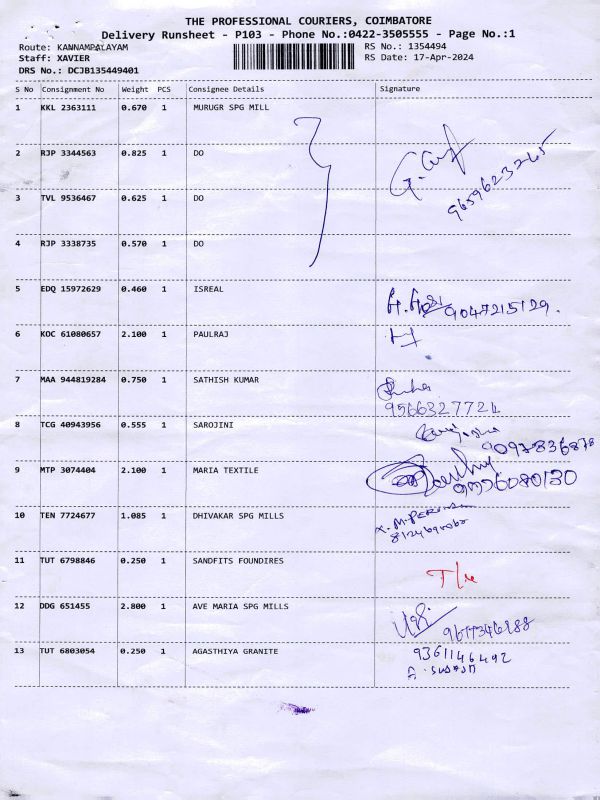 THE PROFESSIONAL COURIERS, COIMBATORE
Delivery Runsheet - P103 - Phone No.:0422-3505555 - Page No.:1
Route: KANNAMPALAYAM RS No.: 1354494
Staff: XAVIER RS Date: 17-Apr-2024
DRS No.: DCJB135449401
S No Consignment No Weight PCS Consignee Details Signature
1 KKL 2363111 0.670 1 MURUGR SPG MILL
2 RJP 3344563 0.825 1 DO
9659623265
3 TVL 9536467 0.625 1 DO
4 RJP 3338735 0.570 1 DO
5 EDQ 15972629 0.460 1 ISREAL
9047215129.
6 KOC 61080657 2.100 1 PAULRAJ
7 MAA 944819284 0.750 1 SATHISH KUMAR
9566327724
8 TCG 40943956 0.555 1 SAROJINI
9097836878
9 MTP 3074404 2.100 1 MARIA TEXTILE
10 TEN 7724677 1.085 1 DHIVAKAR SPG MILLS
11 TUT 6798846 0.250 1 SANDFITS FOUNDIRES
12 DDG 651455 2.800 1 AVE MARIA SPG MILLS
13 TUT 6803054 0.250 1 AGASTHIYA GRANITE
9361146492